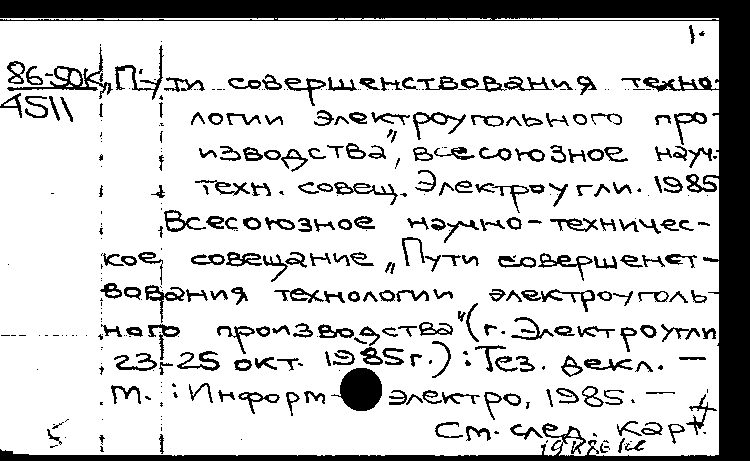 1.
86-50К „Пути совершенствования техно-
4511 логии электроугольного про-
изводства", всесоюзное науч.-
техн. совещ. Электроугли. 1985
Всесоюзное научно-техничес-
кое совещание „Пути совершенст-
вования технологии электроуголь-
ного производства" (г. Электроугли
23-25 окт. 1985г.) : Тез. декл. —
М. : Информэлектро, 1985. —
См. след. карт.
5